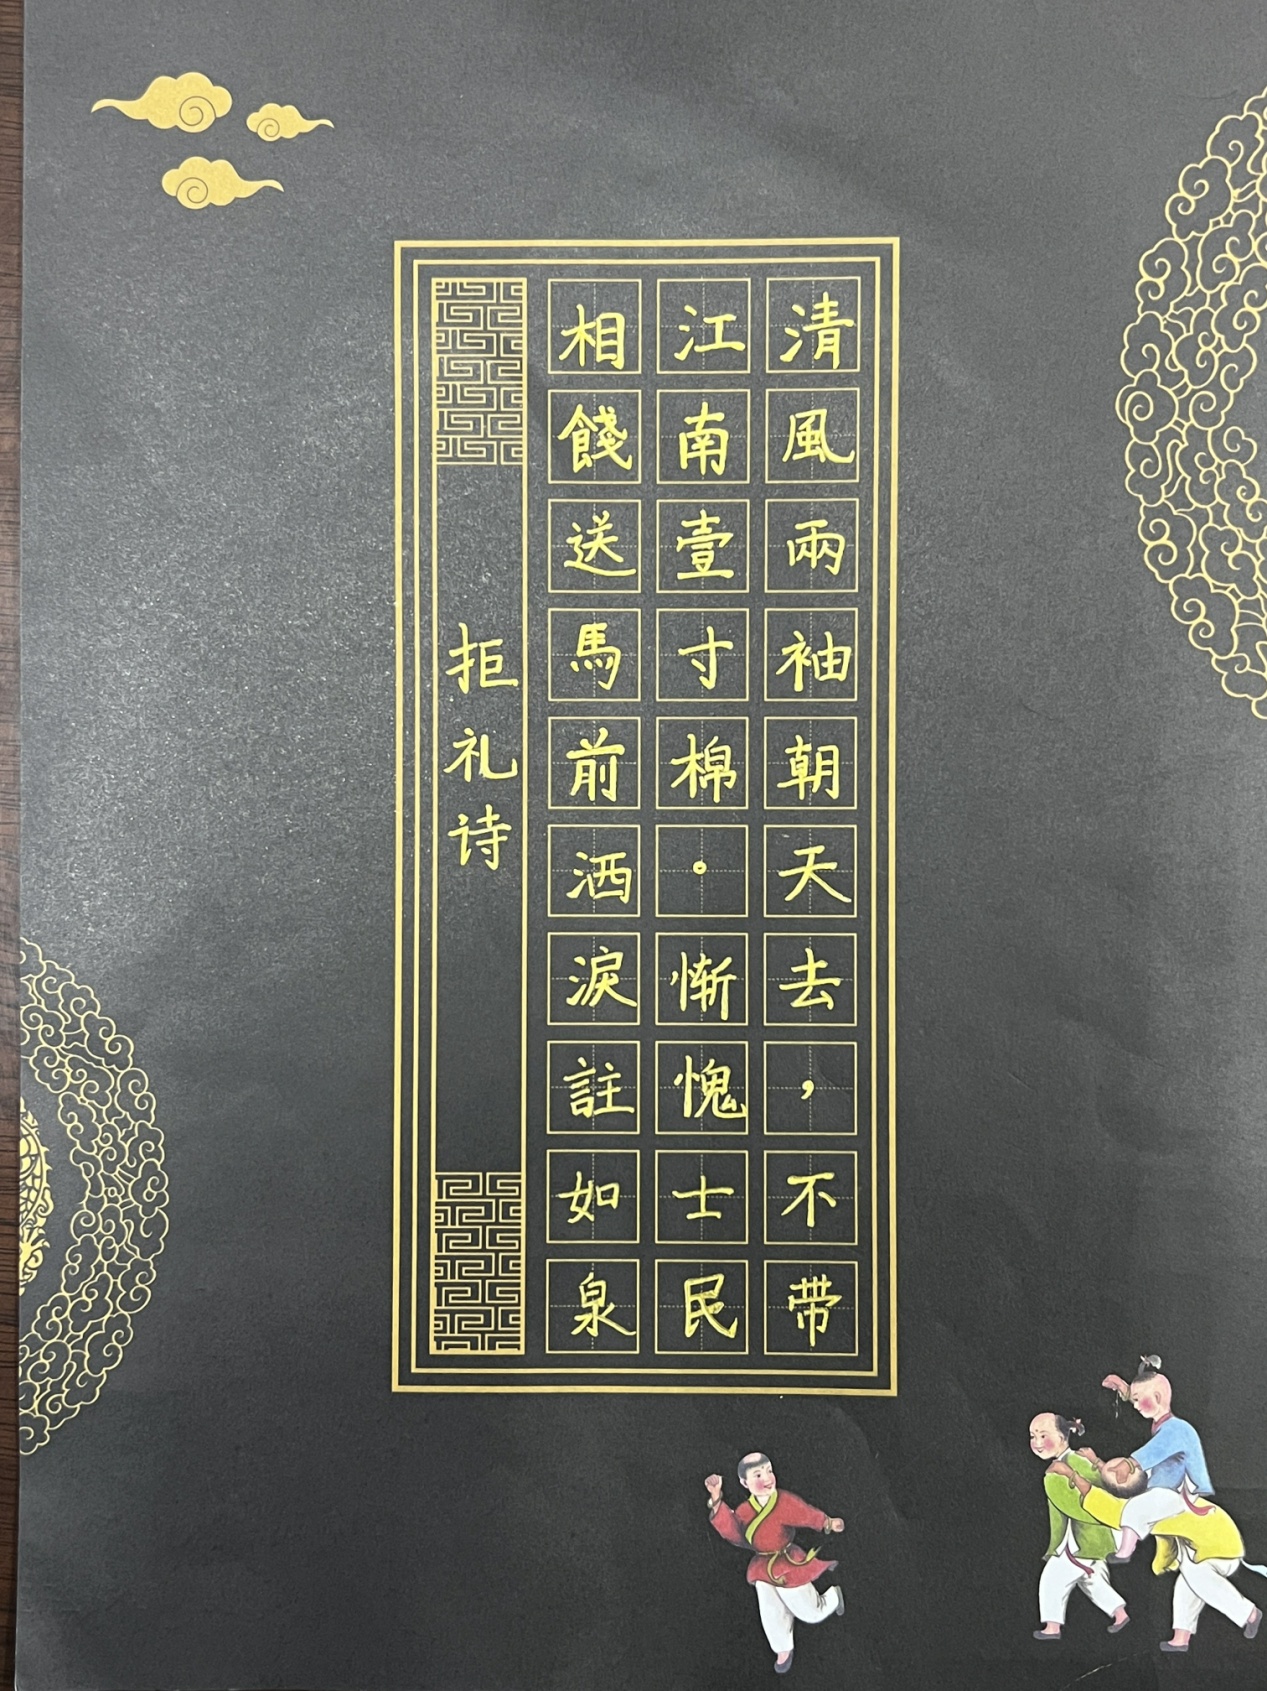 清風兩袖朝天去，不带
江南壹寸棉。慚愧士民
相餞送馬前洒淚註如泉
拒礼诗